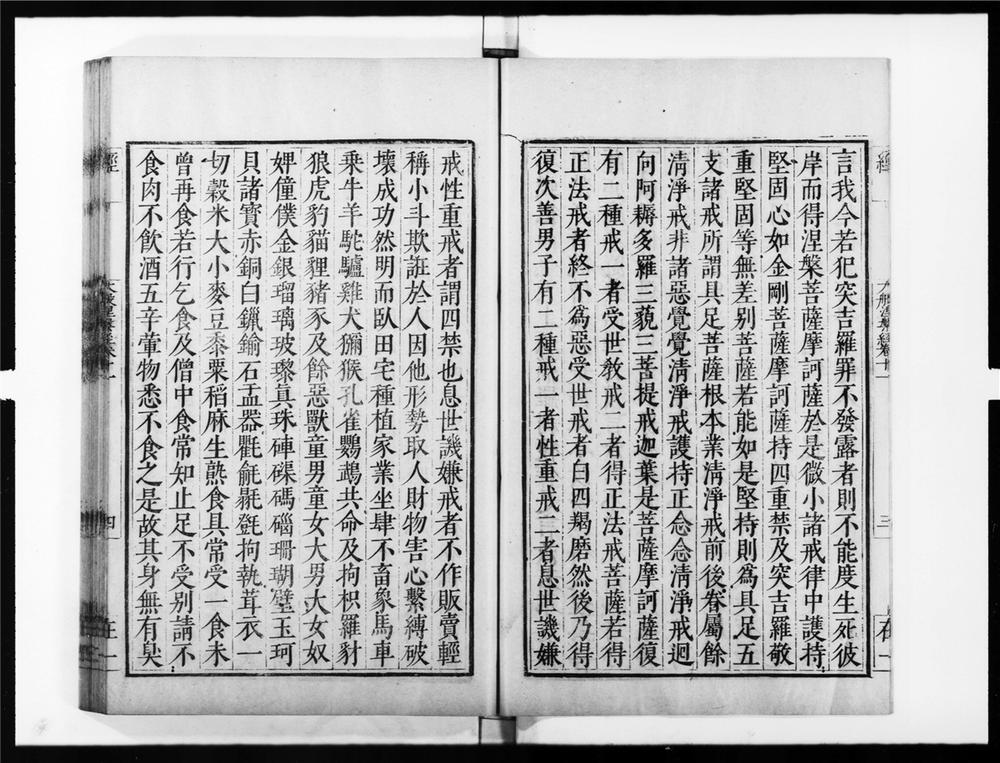 言我今若犯突吉羅罪不發露者則不能度生死彼
岸而得涅槃菩薩摩訶薩於是微小諸戒律中護持
堅固心如金剛菩薩摩訶薩持四重禁及突吉羅敬
重堅固等無差别菩薩若能如是堅持則爲具足五
支諸戒所謂具足菩薩根本業清淨戒前後眷屬餘
清淨戒非諸惡覺覺清淨戒護持正念念清淨戒迴
向阿耨多羅三藐三菩提戒迦葉是菩薩摩訶薩復
有二種戒一者受世敎戒二者得正法戒菩薩若得
正法戒者終不爲惡受世戒者白四羯磨然後乃得
復次善男子有二種戒一者性重戒二者息世譏嫌
戒性重戒者謂四禁也息世譏嫌戒者不作販賣輕
稱小斗欺誑於人因他形勢取人財物害心繫縛破
壞成功然明而臥田宅種植家業坐肆不畜象馬車
乘牛羊駝驢雞犬獼猴孔雀鸚鵡共命及拘枳羅豺
狼虎豹貓狸豬豕及餘惡獸童男童女大男大女奴
婢僮僕金銀瑠璃玻瓈真珠硨磲碼碯珊瑚璧玉珂
貝諸寶赤銅白鑞鍮石盂器氍毹毾㲪拘執茸衣一
切穀米大小麥豆黍粟稻麻生熟食具常受一食未
曾再食若行乞食及僧中食常知止足不受别請不
食肉不飲酒五辛葷物悉不食之是故其身無有臭